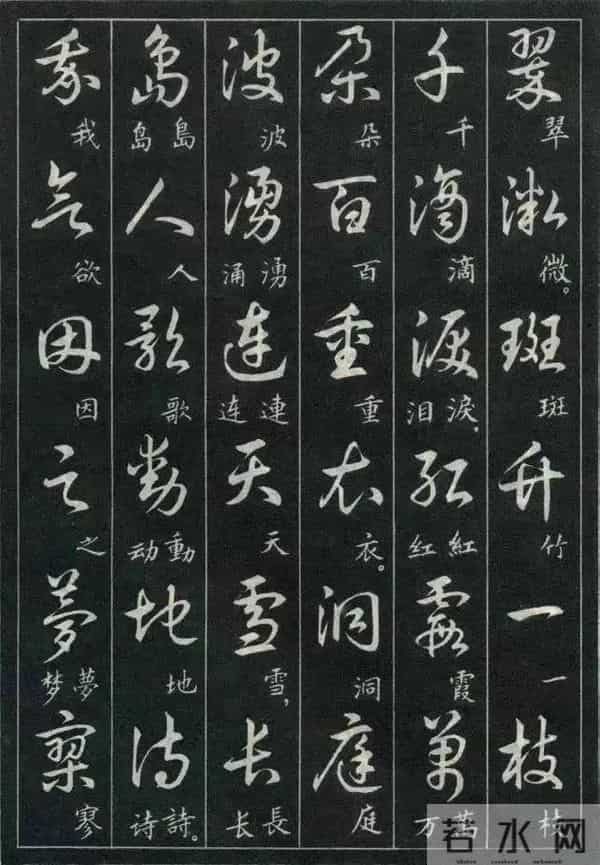 翠微斑竹一枝
翠 微。 斑 竹 一 枝
千滴淚紅霞萬
千 滴 淚，泪 紅红 霞 萬万
朵百重衣洞庭
朵 百 重 衣。 洞 庭
波湧連天雪長
波 湧涌 連连 天 雪， 長长
島人歌動地詩
島岛 人 歌 動动 地 詩。诗
我欲因之夢寥
我 欲 因 之 夢梦 寥
若水网